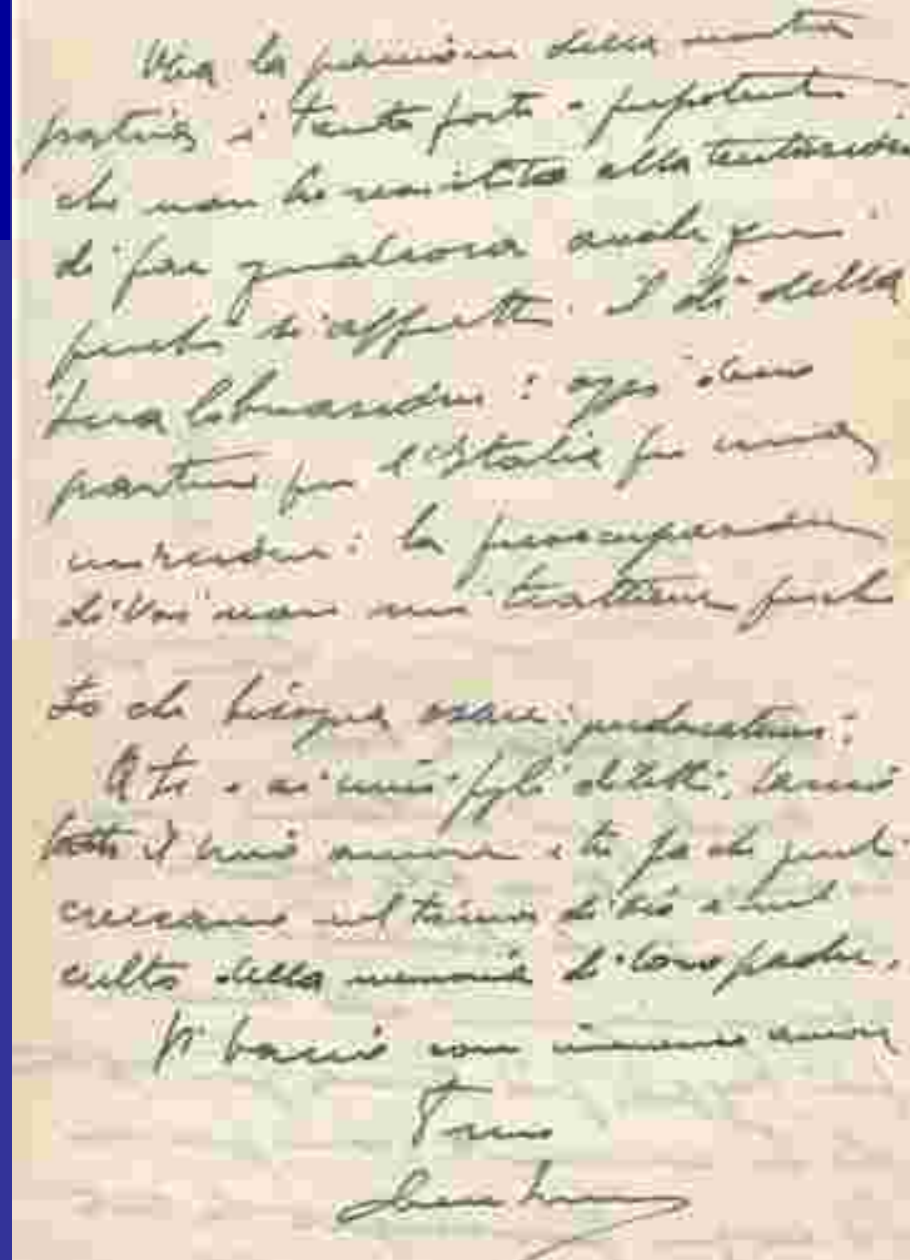 Ma la passione della nostra
patria è tanto forte e prepotente
che non ho resistito alla tentazione
di fare qualcosa anche per
perché si affretti il dì della
sua liberazione: oggi stesso
partirò per l'Italia per una
missione: la preoccupazione
di voi non mi trattiene perché
so che bisogna osare: perdonatemi:
A te e ai miei figli diletti, lascio
tutto il mio amore e tu fa che questi
crescano nel timor di Dio e nel
culto della memoria di loro padre.
Vi bacio con immenso amore
Tuo